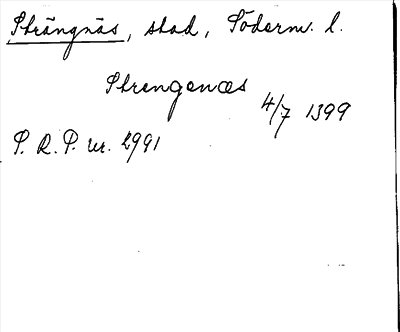 Strängnäs, stad, Söderm. l.
Strengenæs
4/7 1399
S. R. P. nr. 2991